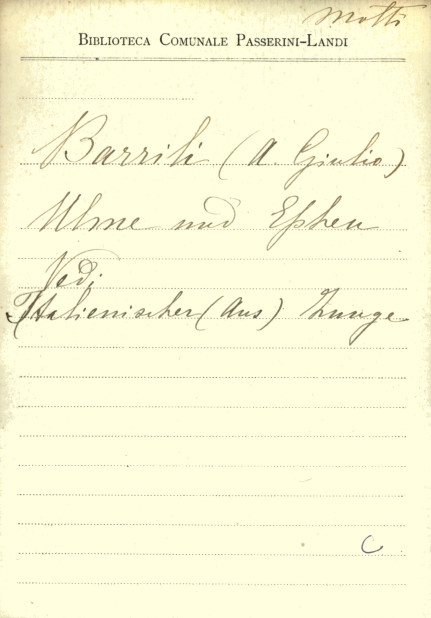 Motti
BIBLIOTECA COMUNALE PASSERINI-LANDI
Barrili (A. Giulio)
Ulme und Epheu
Vedi:
Italienischer (Aus) Zunge
C